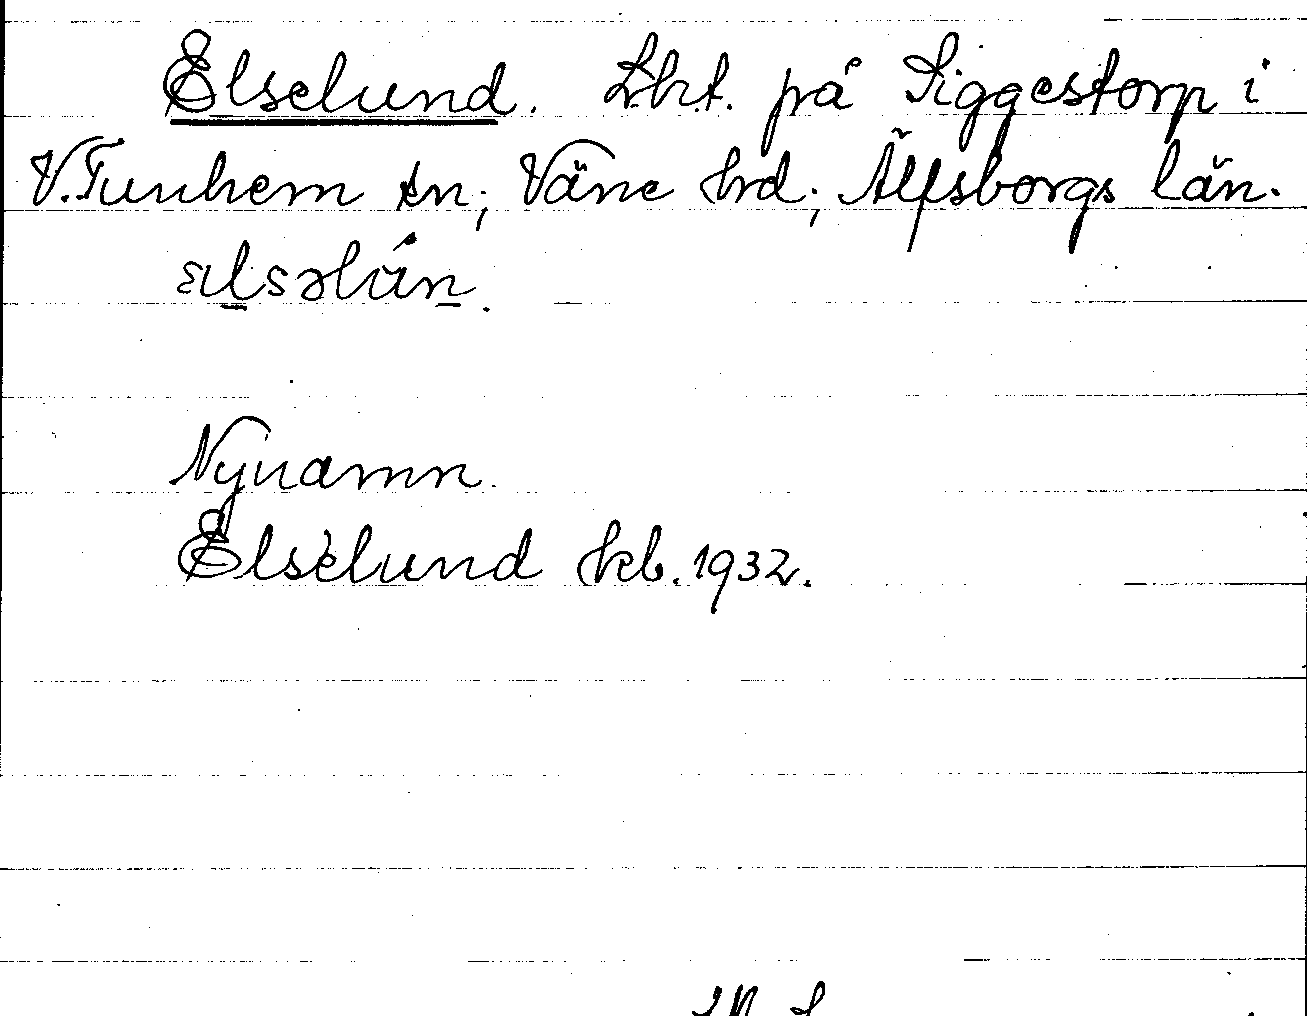 Elselund. Lht. på Siggestorp i
V. Tunhem sn; Väne hd; Älfsborgs län.
Nynamn.
Elselund hkb. 1932.